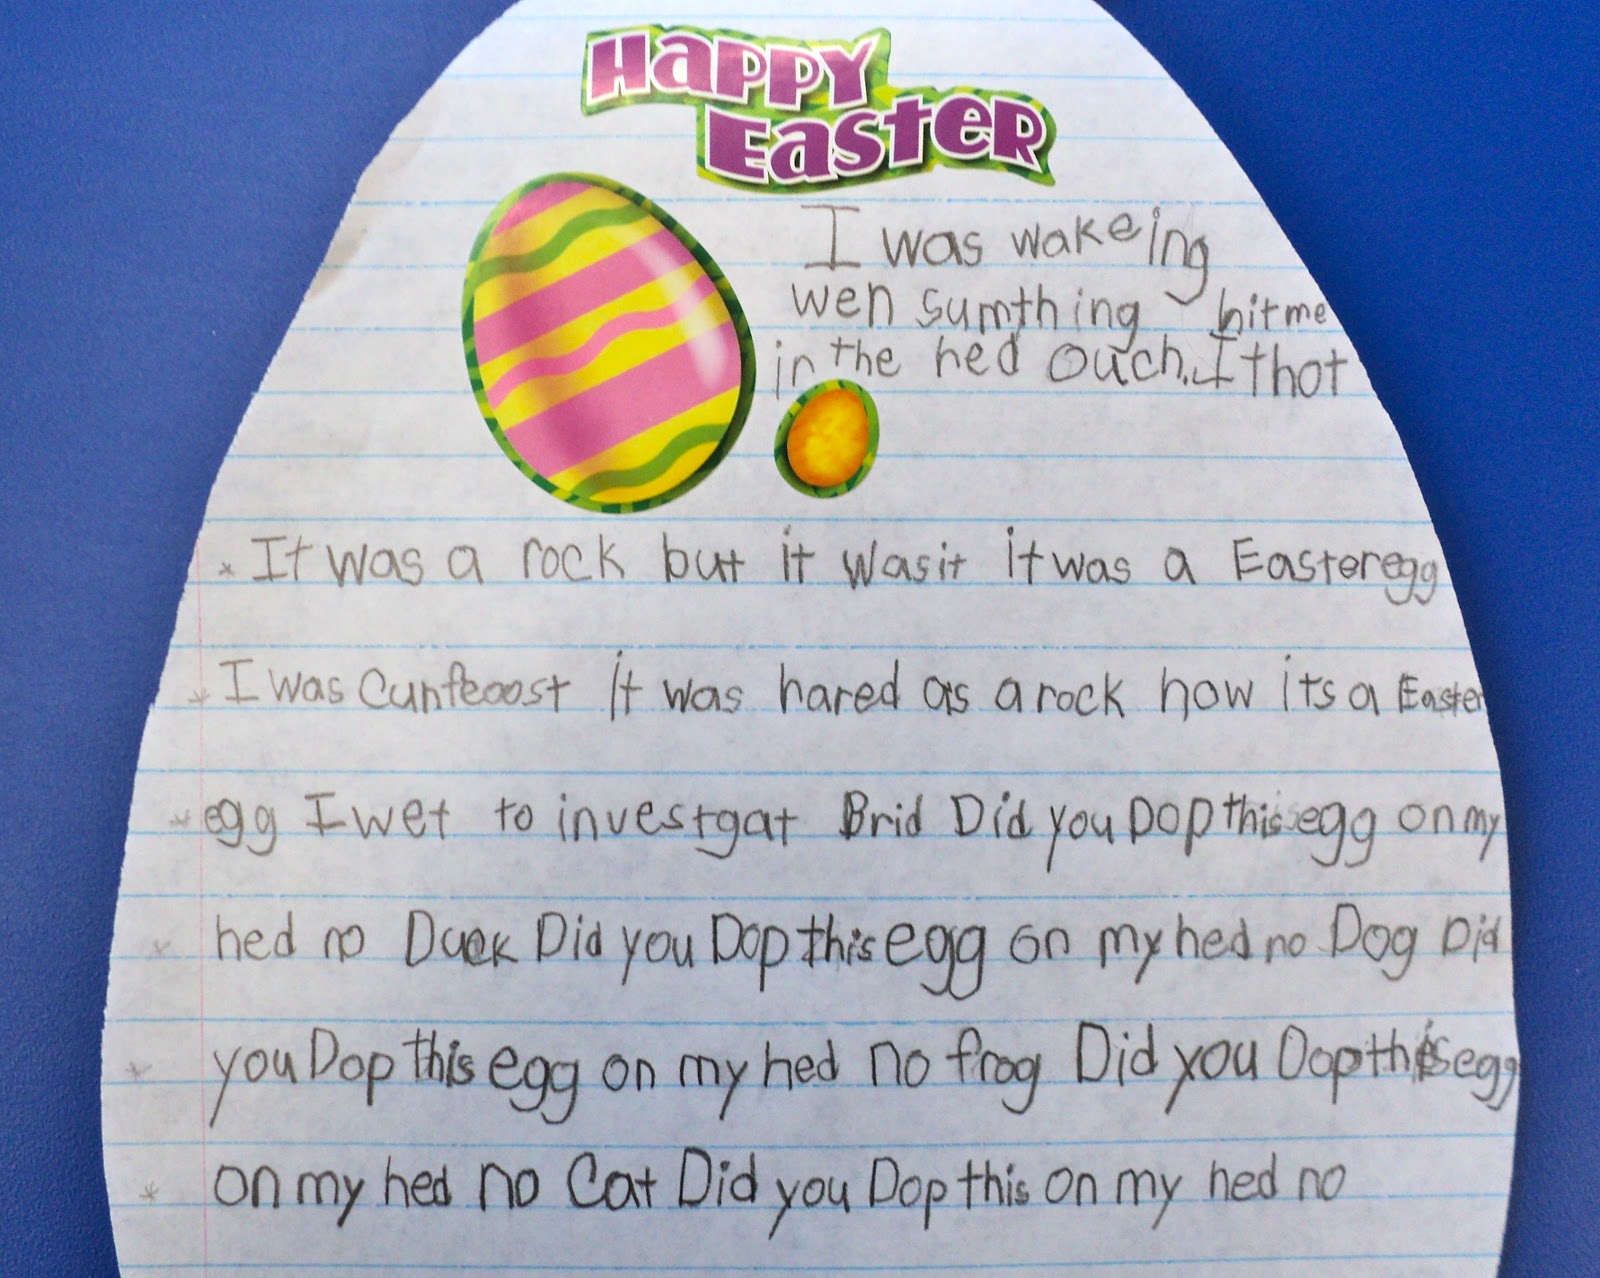 Happy
Easter
I was wakeing
wen sumthing hit me
in the hed ouch. I thot
* It was a rock but it wasit it was a Easter egg
* I was Cunfeoost it was hared as a rock how its a Easter
* egg I wet to investgat Brid Did you Dop this egg on my
* hed no Duck Did you Dop this egg on my hed no Dog Did
* you Dop this egg on my hed no frog Did you Dop this egg
* on my hed no Cat Did you Dop this on my hed no